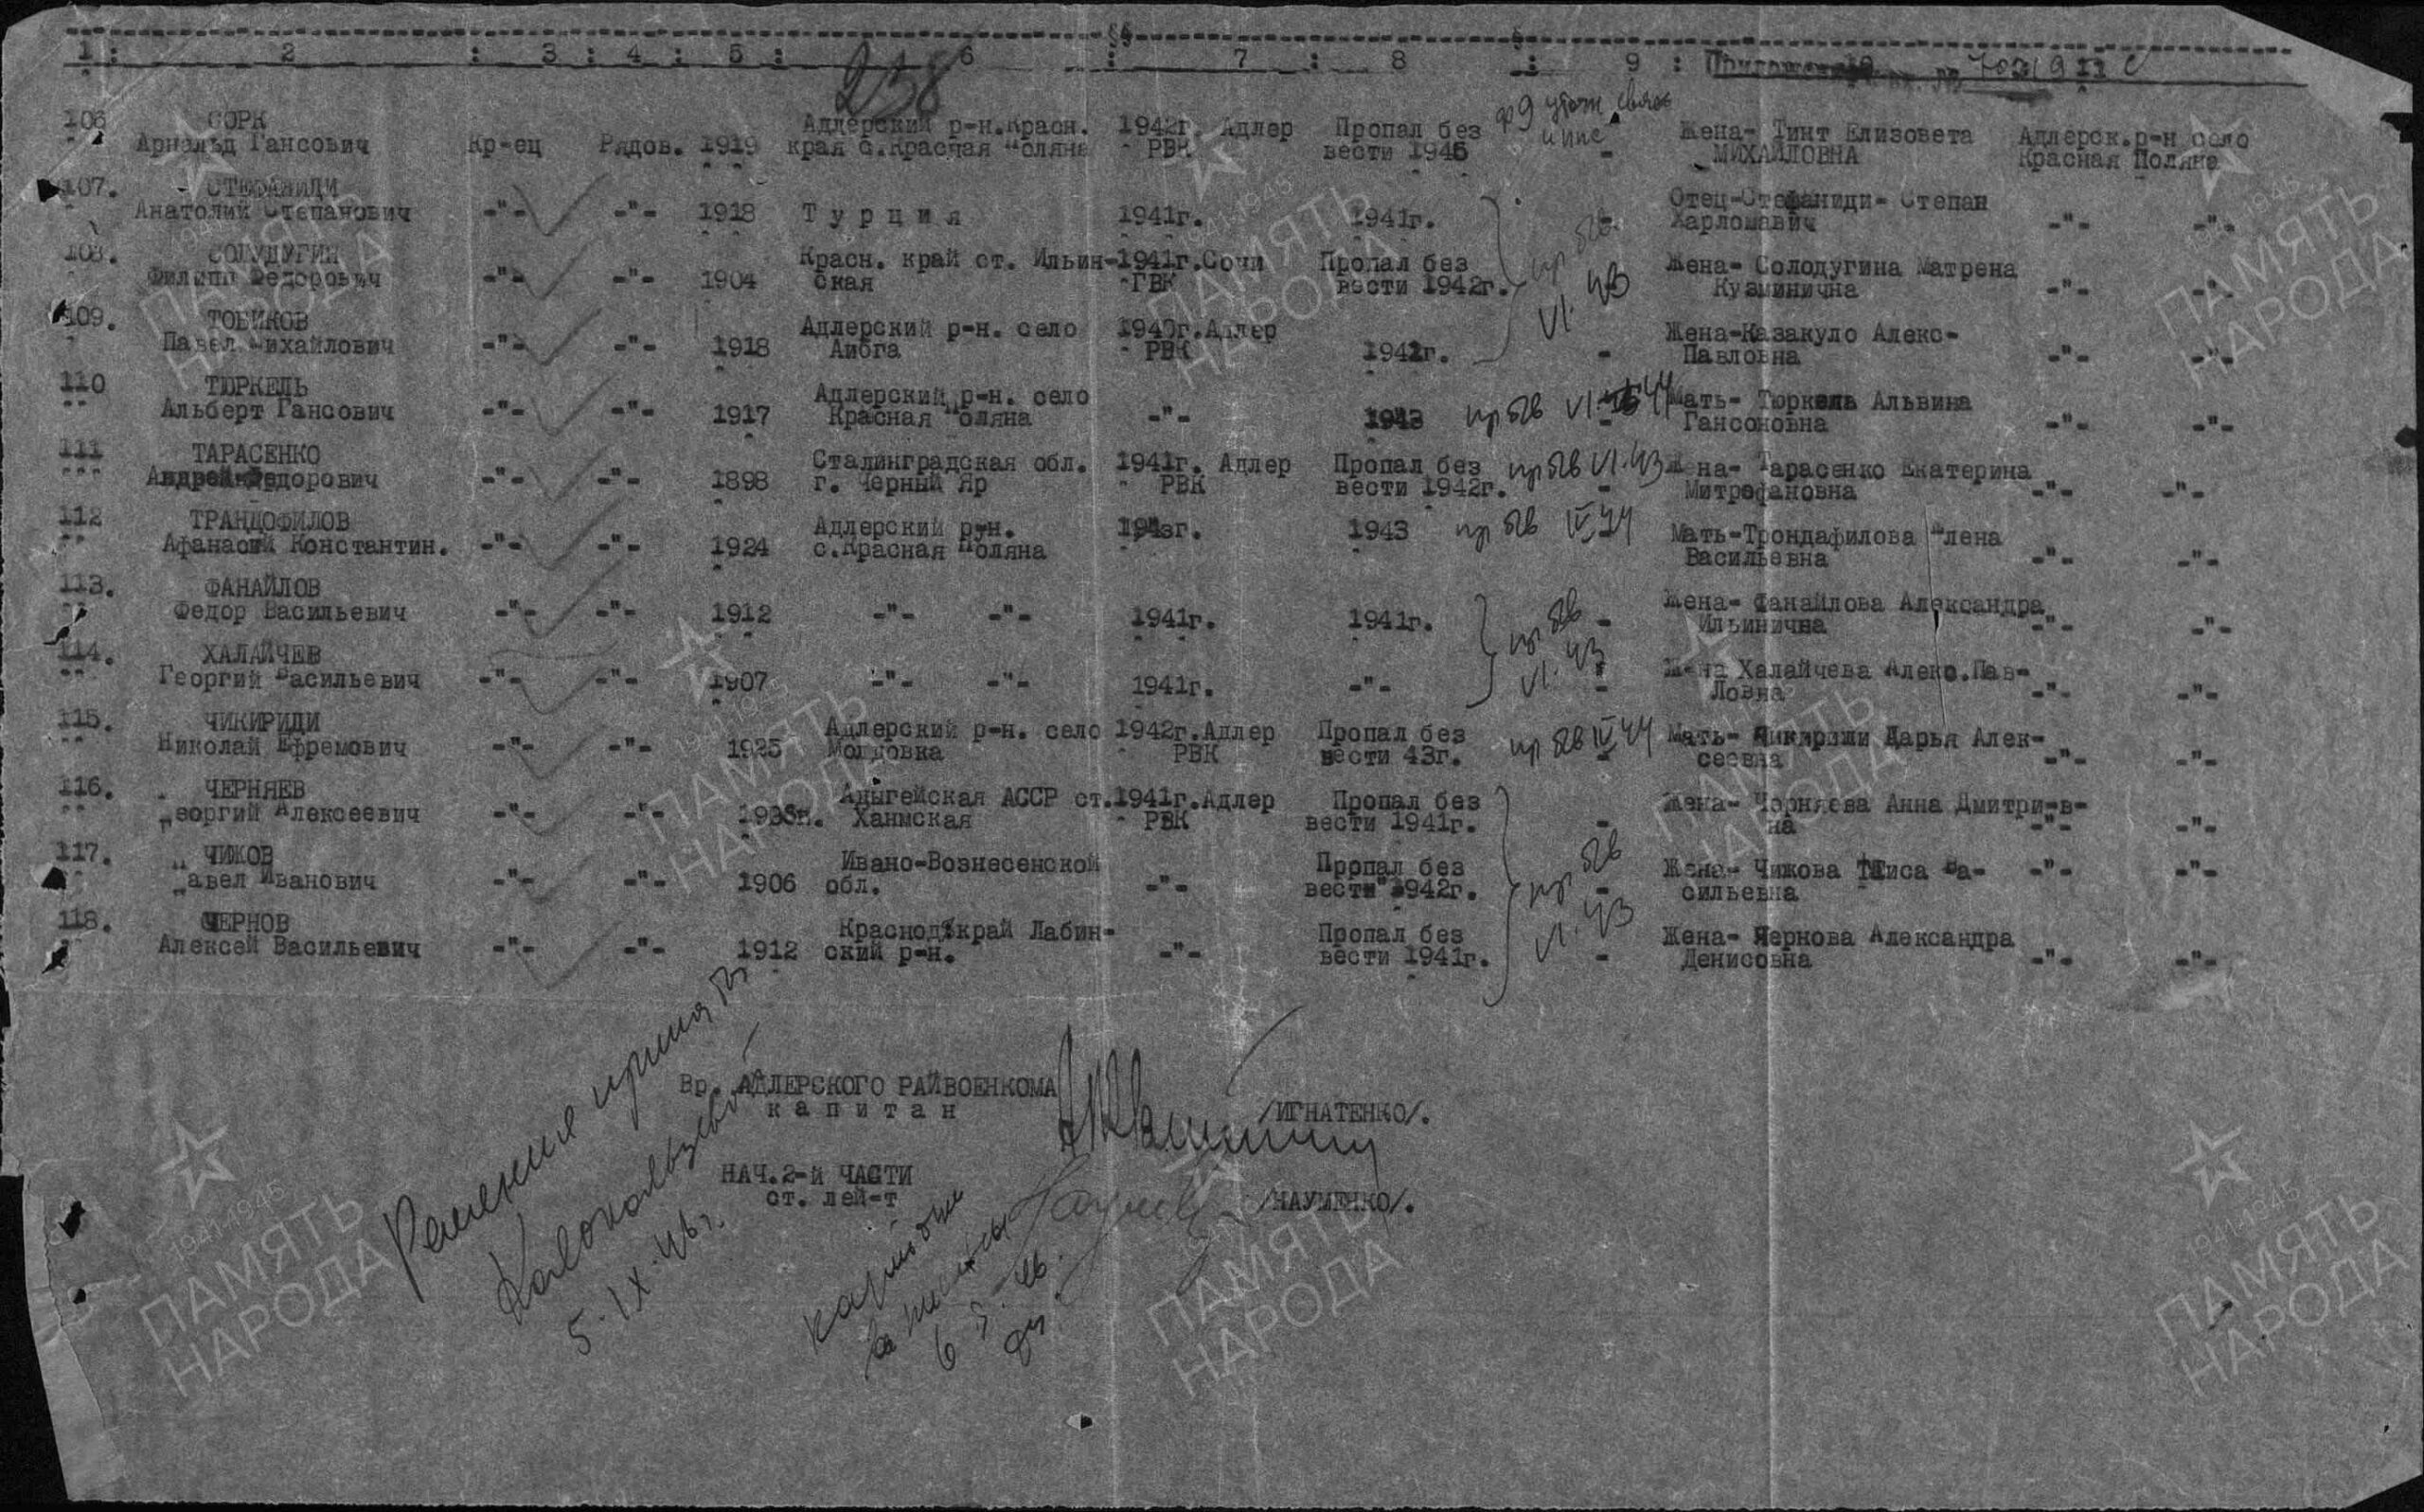 1 : 2 : 3 : 4 : 5 : 6 : 7 : 8 : 9 :
238
106 СОРК
Арнольд Гансович Кр-ец Рядов. 1919 Адлерский р-н.Красн. края с.Красная Поляна 1942г. Адлер РВК Пропал без вести 1945 - Жена- Тинт Елизовета МИХАЙЛОВНА Адлерск.р-н село Красная Поляна
107. СТЕФАНИДИ
Анатолий Степанович -"- -"- 1918 Т у р ц и я 1941г. 1941г. - Отец-Стефаниди- Степан Харломавич -"- -"-
108. СОЛУДУГИН
Филипп Федорович -"- -"- 1904 Красн. край ст. Ильин-ская 1941г.Сочи ГВК Пропал без вести 1942г. Жена- Солодугина Матрена Кузминична -"- -"-
пр бв VI. 43
109. ТОБИКОВ
Павел Михайлович -"- -"- 1918 Адлерский р-н. село Аибга 1940г.Адлер РВК 1942г. - Жена-Казакуло Алекс- Павловна -"- -"-
110 ТЮРКЕЛЬ
Альберт Гансович -"- -"- 1917 Адлерский р-н. село Красная Поляна -"- 1943 пр бв VI 44 - Мать- Тюркель Альвина Гансоновна -"- -"-
111 ТАРАСЕНКО
Андрей Федорович -"- -"- 1898 Сталинградская обл. г. Черный Яр 1941г. Адлер РВК Пропал без вести 1942г. пр бв VI.43 - Жена- Тарасенко Екатерина Митрофановна -"- -"-
112 ТРАНДОФИЛОВ
Афанасий Константин. -"- -"- 1924 Адлерский р-н. с.Красная Поляна 1943г. 1943 пр бв IV 44 Мать-Трондафилова Елена Васильевна -"- -"-
113. ФАНАЙЛОВ
Федор Васильевич -"- -"- 1912 -"- -"- 1941г. 1941г. - Жена- Фанайлова Александра Ильинична -"- -"-
пр бв VI. 43
114. ХАЛАЙЧЕВ
Георгий Васильевич -"- -"- 1907 -"- -"- 1941г. -"- - Жена Халайчева Алекс.Пав- Ловна -"- -"-
115. ЧИКИРИДИ
Николай Ефремович -"- -"- 1925 Адлерский р-н. село Молдовка 1942г.Адлер РВК Пропал без вести 43г. пр бв IV 44 - Мать- Чикириди Дарья Алек- сеевна -"- -"-
116. ЧЕРНЯЕВ
Георгий Алексеевич -"- -"- Адыгейская АССР ст. Ханмская 1941г.Адлер РВК Пропал без вести 1941г. - Жена- Черняева Анна Дмитри-в- на -"- -"-
117. ЧИЖОВ
Павел Иванович -"- -"- 1906 Ивано-Вознесенской обл. -"- Пропал без вести 1942г. - Жена- Чижова Ва- сильевна -"- -"-
пр бв VI. 43
118. ЧЕРНОВ
Алексей Васильевич -"- -"- 1912 Краснод.край Лабин- ский р-н. -"- Пропал без вести 1941г. - Жена- Чернова Александра Денисовна -"- -"-
Вр. АДЛЕРСКОГО РАЙВОЕНКОМА
к а п и т а н /ИГНАТЕНКО/.
НАЧ.2-й ЧАСТИ
ст. лей-т /НАУМЕНКО/.
Решения
5.IX.46г.
1941-1945
ПАМЯТЬ
НАРОДА